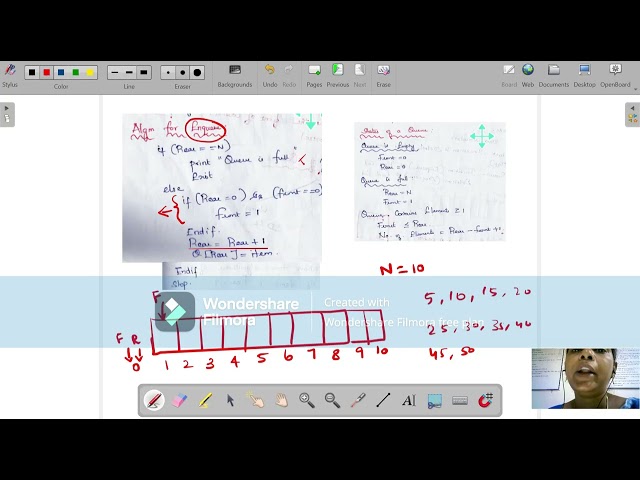 Stylus
Color
Line
Eraser
Backgrounds
Undo
Redo
Pages
Previous
Next
Erase
Board
Web
Documents
Desktop
OpenBoard
Algm for Enqueue
if (Rear == N)
print "Queue is full"
Exit
else
if (Rear = 0) && (Front == 0)
Front = 1
Endif
Rear = Rear + 1
Q[Rear] = Item
Endif
Stop
States of a Queue
Queue is Empty
Front = 0
Rear = 0
Queue is full
Rear = N
Front = 1
Queue Contains Element ≥ 1
Front ≤ Rear
No. of Elements = Rear - Front + 1
N = 10
5, 10, 15, 20
25, 30, 35, 40
45, 50
F
F R
0 1 2 3 4 5 6 7 8 9 10
Wondershare
Filmora
Created with
Wondershare Filmora free plan